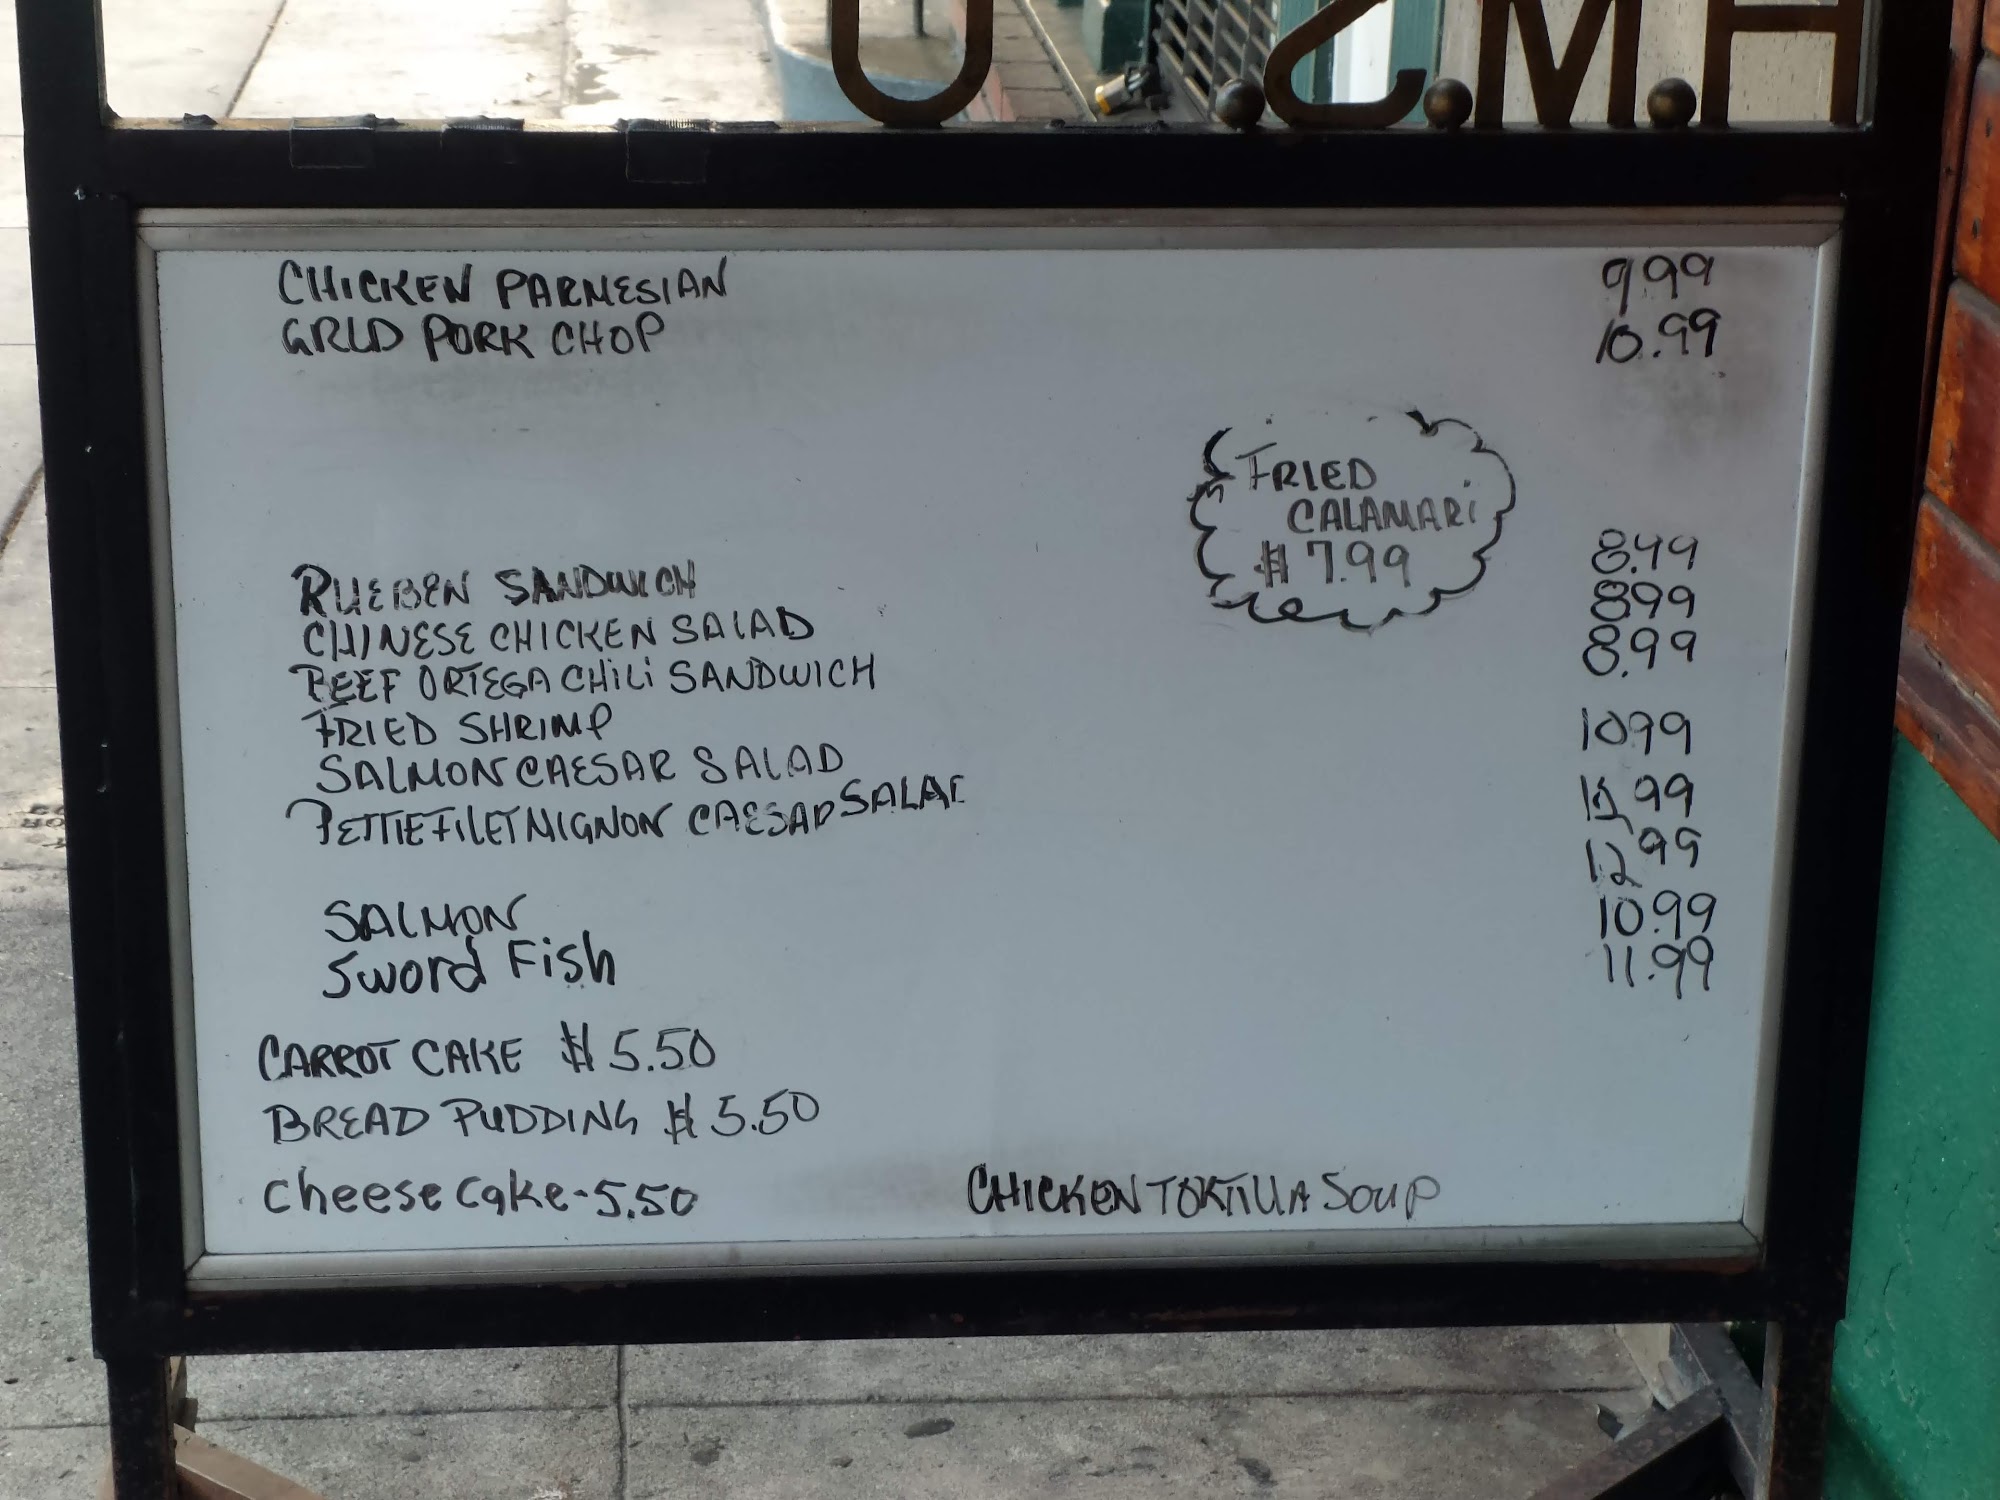 CHICKEN PARMESIAN 9.99
GRLD PORK CHOP 10.99
FRIED
CALAMARI
$7.99
RUEBEN SANDWICH 8.49
CHINESE CHICKEN SALAD 899
BEEF ORTEGA CHILI SANDWICH 8.99
FRIED SHRIMP 1099
SALMON CAESAR SALAD 99
PETTIE FILET MIGNON CAESAR SALAD 12 99
SALMON 10.99
Sword Fish 11.99
CARROT CAKE $5.50
BREAD PUDDING $5.50
Cheese Cake - 5.50
CHICKEN TORTILLA SOUP